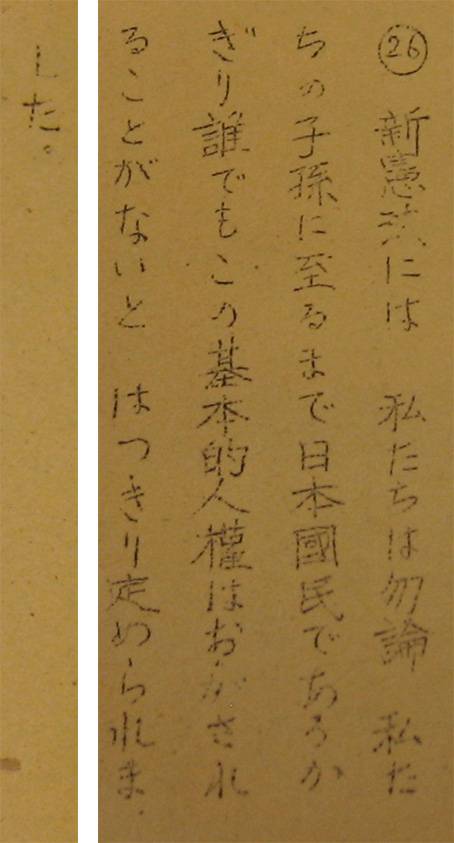 ㉖ 新憲法には 私たちは勿論 私た
ちの子孫に至るまで日本國民であるか
ぎり誰でもこの基本的人權はおかされ
ることがないと はつきり定められま
した。